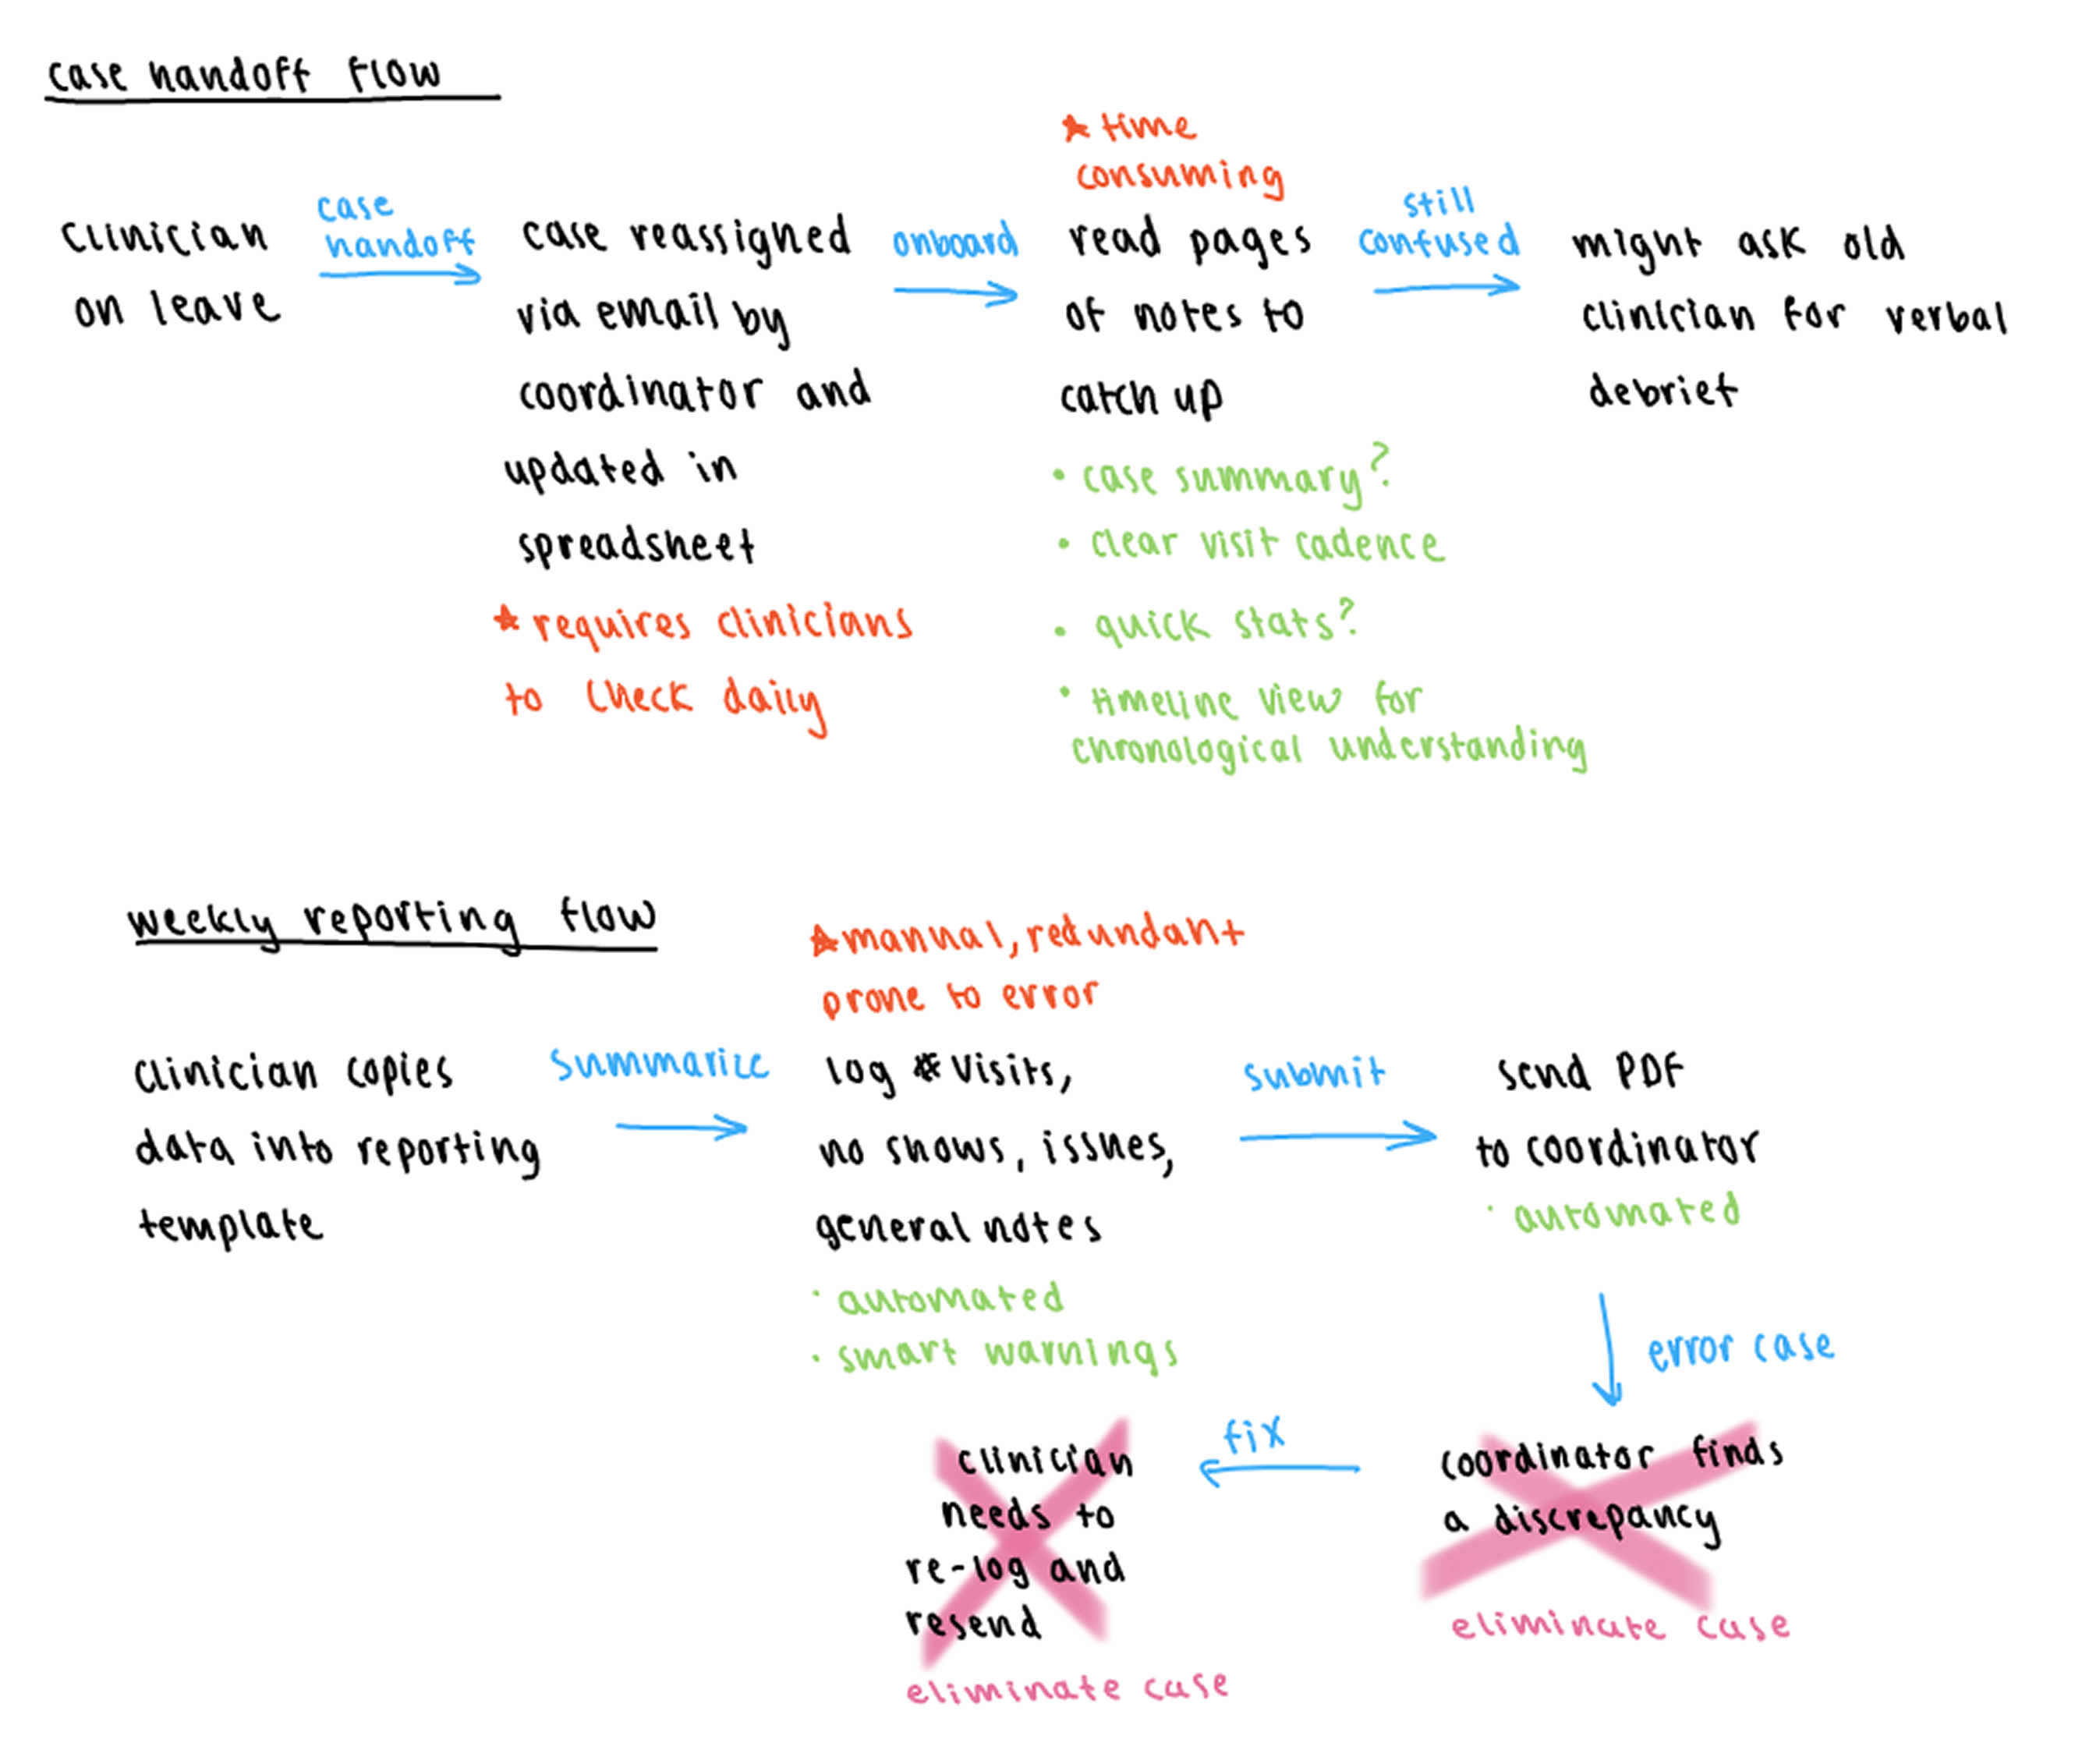 case handoff flow
clinician
on leave
case
handoff
case reassigned
via email by
coordinator and
updated in
spreadsheet
★ requires clinicians
to check daily
onboard
★ time
consuming
read pages
of notes to
catch up
• case summary?
• clear visit cadence
• quick stats?
• timeline view for
chronological understanding
still
confused
might ask old
clinician for verbal
debrief
weekly reporting flow
clinician copies
data into reporting
template
summarize
★ manual, redundant
prone to error
log # visits,
no shows, issues,
general notes
• automated
• smart warnings
submit
send PDF
to coordinator
• automated
error case
coordinator finds
a discrepancy
eliminate case
fix
clinician
needs to
re-log and
resend
eliminate case